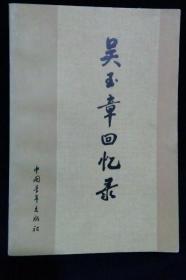 吴玉章回忆录
中国青年出版社